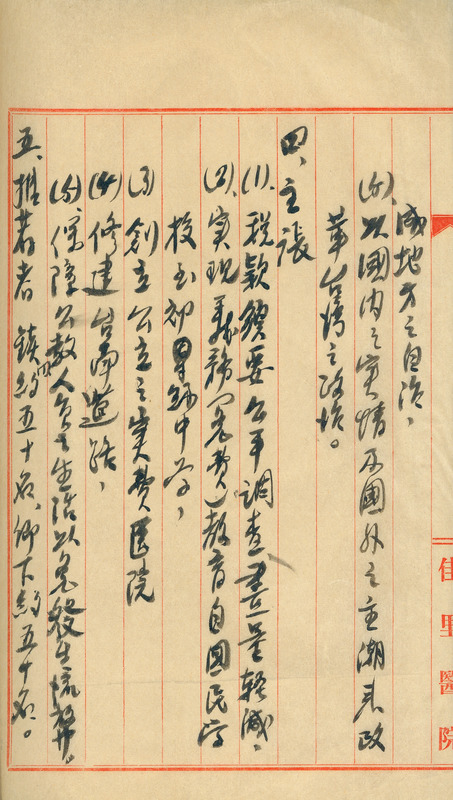 成地方之自治，
(5)、以國內之實情及國外之主潮來政
革台灣之政治。
四、主張
(1)、稅款須要公平調查盡量輕減，
(2)、実現義務（免費）教育自國民学
校至初級中学，
(3)創立公立之実費医院
(4)修建台南道路，
(5)保障公教人員生活以免發生流弊。
五、推薦者 鎮內約五十名、鄉下約五十名。
佳里醫院